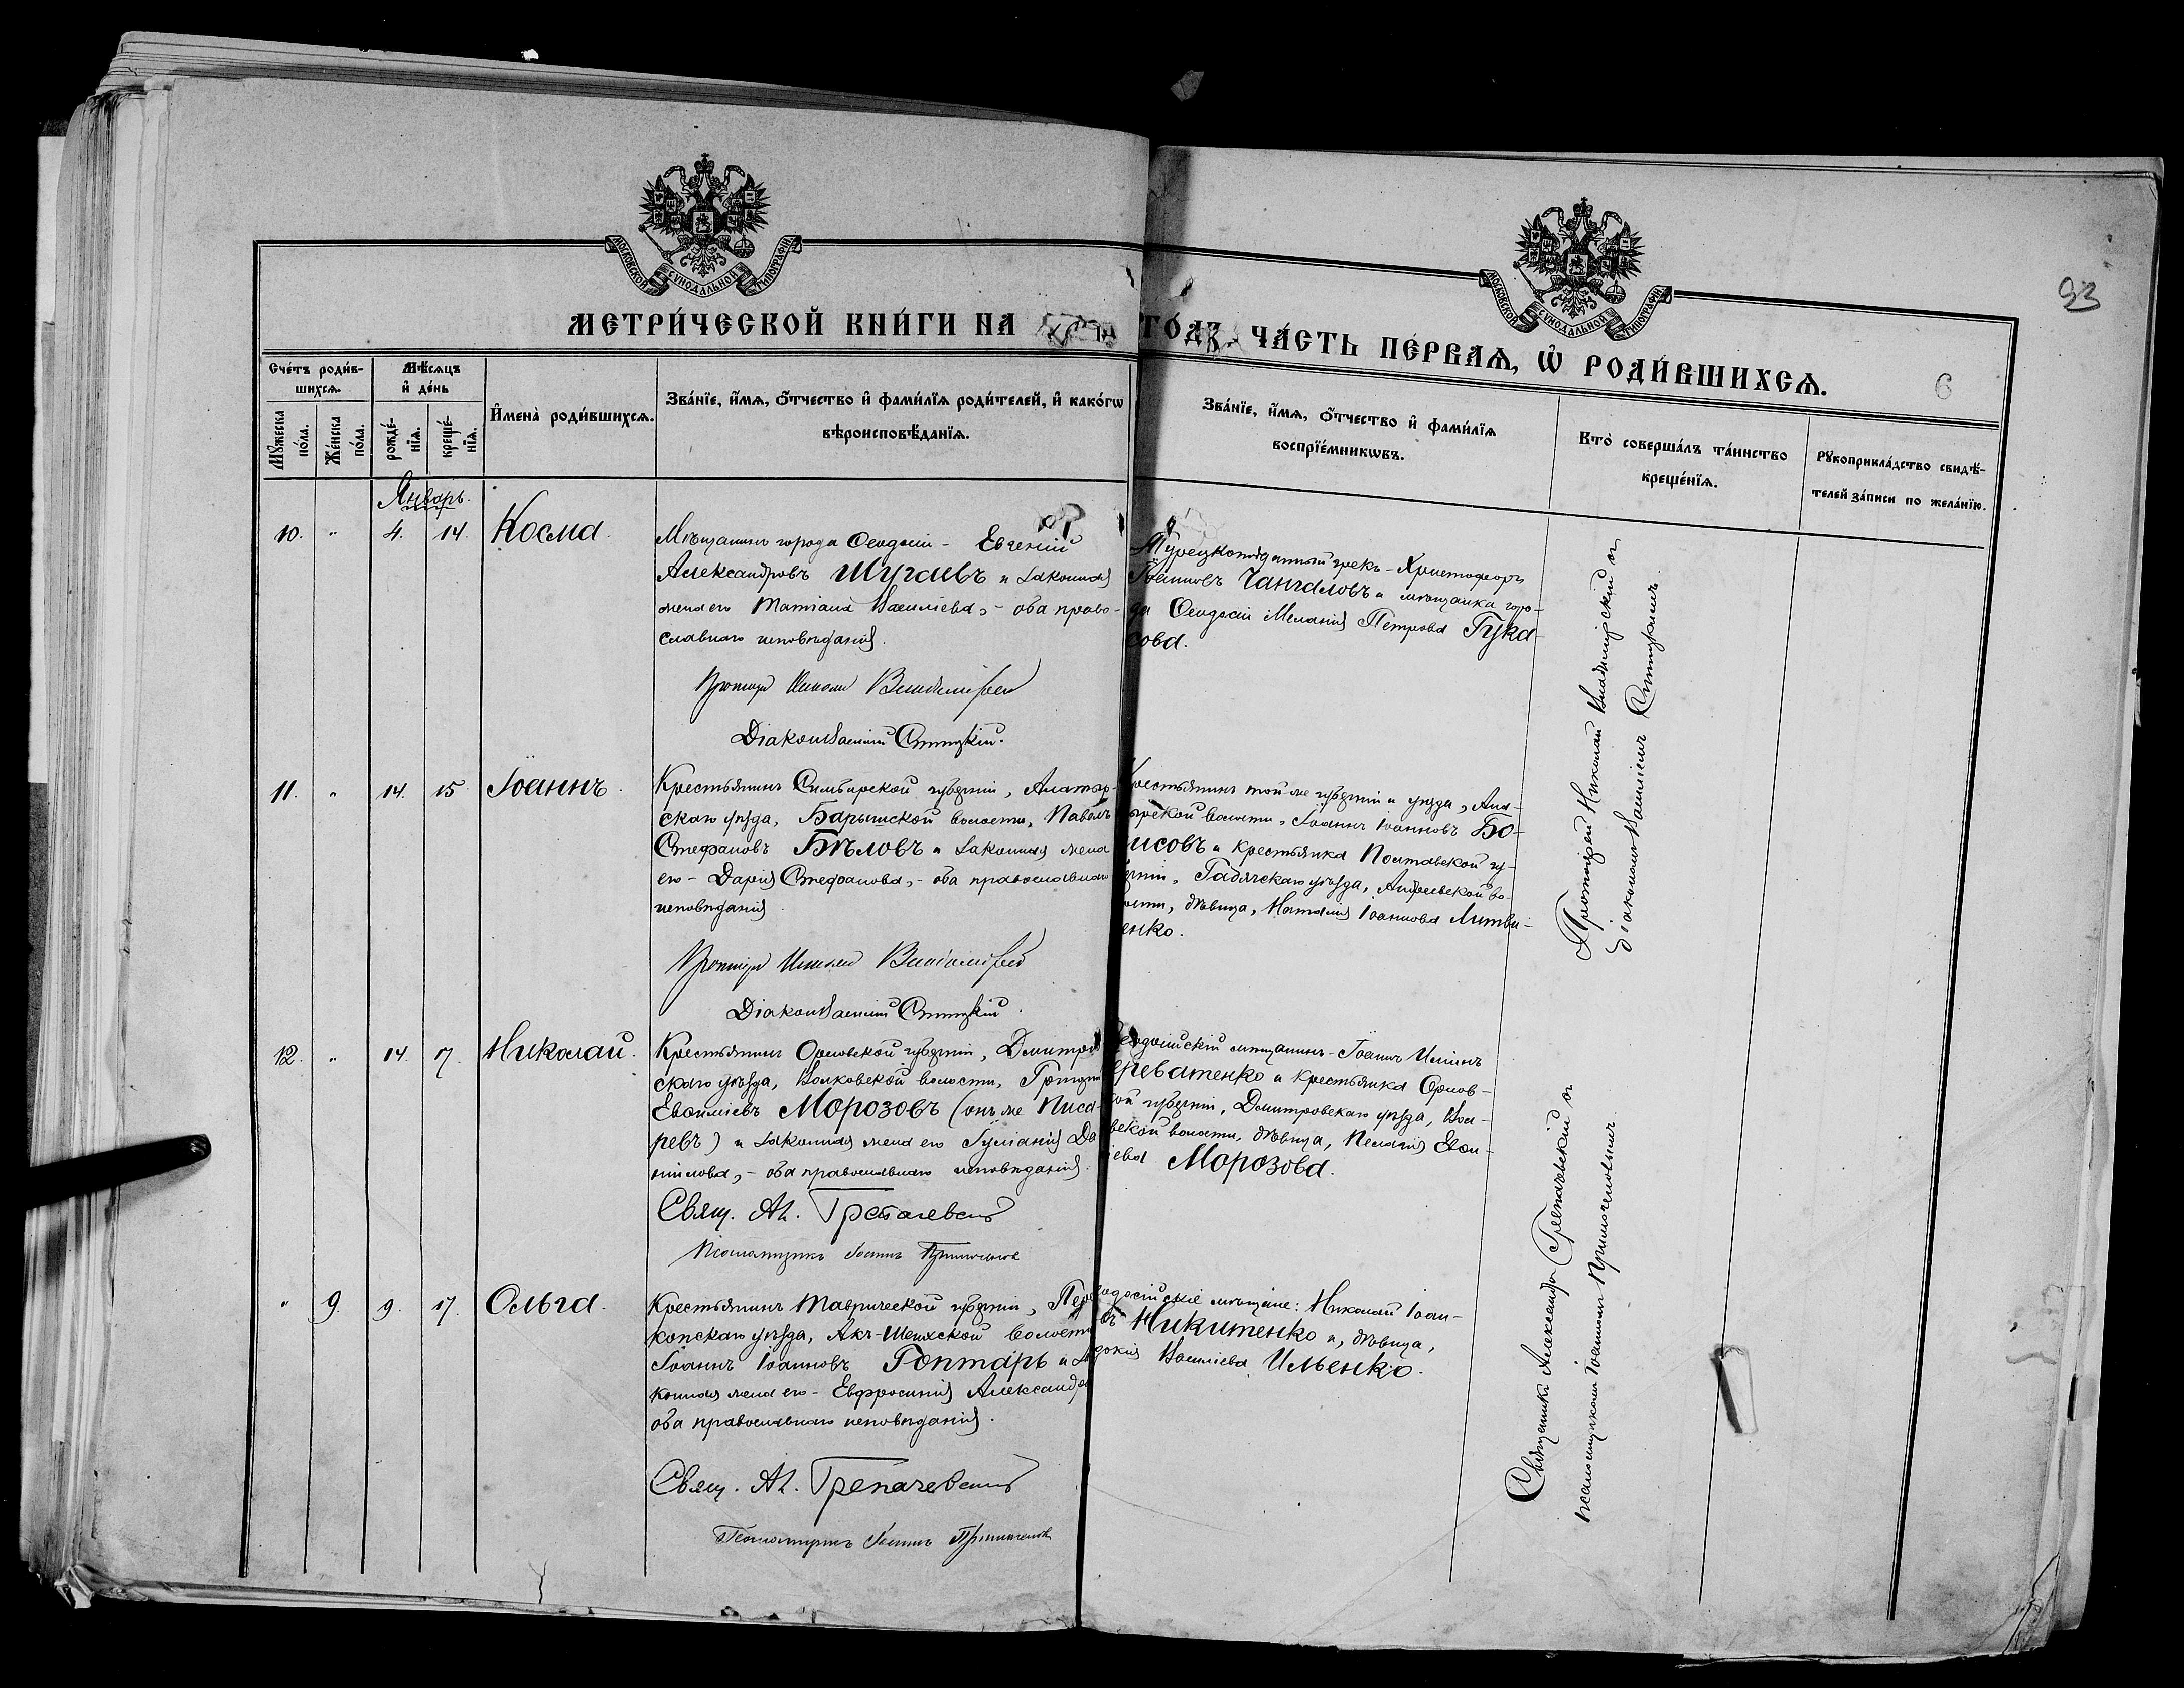 МОСКОВСКОЙ СѴНОДАЛЬНОЙ ТИПОГРАФІИ
МОСКОВСКОЙ СѴНОДАЛЬНОЙ ТИПОГРАФІИ
93
МЕТРИ́ЧЕСКОЙ КНИ́ГИ НА
ГО́ДЪ, ЧА́СТЬ ПЕ́РВАѦ, Ѡ҆ РОДИ́ВШИХСѦ.
6
Сче́тъ роди́в-
шихсѧ.
Мѣ́сяцъ
и҆ де́нь
Мꙋ́жеска
по́ла.
Же́нска
по́ла.
рожде́-
нїѧ.
креще́-
нїѧ.
И҆мена̀ роди́вшихсѧ.
Зва́нїе, и҆́мѧ, ѻ҆́тчество и҆ фами́лїѧ роди́телей, и҆ како́гѡ
вѣроисповѣ́данїѧ.
Зва́нїе, и҆́мѧ, ѻ҆́тчество и҆ фами́лїѧ
воспрїе́мникѡвъ.
Кто̀ соверша́лъ та́инство
креще́нїѧ.
Рꙋкоприкла́дство свидѣ́-
телей за́писи по жела́нїю.
Январь.
10. " 4. 14. Косма.
Мѣщанинъ города Ѳеодосіи - Евгеній
Александровъ Шугаевъ и законная
жена его Татіана Васильева, - оба право-
славнаго исповѣданія.
Протоіерей Николай Владимірскій
Діаконъ Василій Ситицкій.
Турецкоподданный грекъ - Христофоръ
Іоанновъ Чангаловъ и мѣщанка горо-
да Ѳеодосіи Меланія Петрова Гука-
сова.
Протоіерей Николай Владимірскій съ
діакономъ Василіемъ
11. " 14. 15. Іоаннъ.
Крестьянинъ Симбирской губерніи, Алатыр-
скаго уѣзда, Барышской волости, Павелъ
Стефановъ Бѣловъ и законная жена
его - Дарія Стефанова, - оба православнаго
исповѣданія.
Протоіерей Николай Владимірскій
Діаконъ Василій Ситицкій.
Крестьянинъ той-же губерніи и уѣзда, Ала-
тырской волости, Іоаннъ Іоанновъ Бо-
рисовъ и крестьянка Полтавской гу-
берніи, Гадячскаго уѣзда, Андреевской во-
лости, дѣвица, Наталія Іоаннова Литви-
ненко.
12. " 14. 17. Николай.
Крестьянинъ Орловской губерніи, Дмитров-
скаго уѣзда, Волковской волости, Григорій
Евѳиміевъ Морозовъ (онъ же Писа-
ревъ) и законная жена его Іуліанія Да-
ніилова, - оба православнаго исповѣданія.
Свящ. Ал. Грепачевскій
Псаломщикъ Іоаннъ
Ѳеодосійскій мѣщанинъ - Іоаннъ Ильинъ
Череватенко и крестьянка Орлов-
ской губерніи, Дмитровскаго уѣзда, Вол-
ковской волости, дѣвица, Пелагія Евѳи-
міева Морозова.
Священникъ Александръ Грепачевскій съ
псаломщикомъ Іоанномъ
" 9. 9. 17. Ольга.
Крестьянинъ Таврической губерніи, Пере-
копскаго уѣзда, Акъ-Шеихской волости
Іоаннъ Іоанновъ Гоптарь и за-
конная жена его - Евфросинія Александрова
оба православнаго исповѣданія.
Свящ. Ал. Грепачевскій
Псаломщикъ Іоаннъ
Ѳеодосійскіе мѣщане: Николай Іоан-
новъ Никитенко и, дѣвица,
Евдокія Васильева Ильенко.